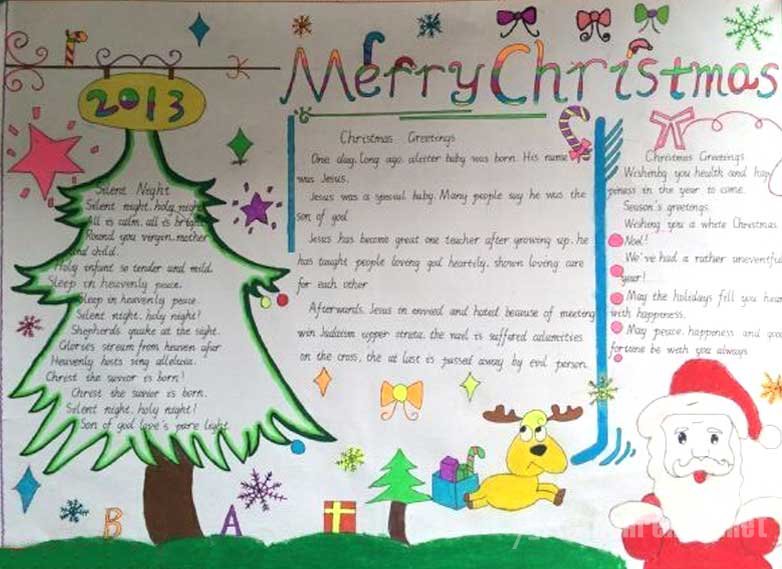 Merry Christmas
2013
Silent Night
Silent night, holy night
All is calm, all is bright
Round you virgin, mother
and child.
Holy infant so tender and mild.
Sleep in heavenly peace.
Sleep in heavenly peace.
Silent night, holy night!
Shepherds quake at the sight.
Glories stream from heaven afar
Heavenly hosts sing alleluia.
Christ the savior is born!
Christ the savior is born.
Silent night, holy night!
Son of god love's pure light
B A
Christmas Greetings
One day, long ago, a baby was born. His name
was Jesus.
Jesus was a special baby. Many people say he was the
son of god
Jesus has become great one teacher after growing up, he
has taught people loving god heartily, shown loving care
for each other
Afterwards, Jesus in envied and hated because of meeting
win Judaism upper strata, the nael is suffered calamities
on the cross, the at last is passed away by evil person.
Christmas Greetings
Wishenbg you health and hap
piness in the year to come.
Season's greetings.
Wishing you a white Christmas
Noel!
We've had a rather uneventful
year!
May the holidays fill you hea
with happiness.
May peace, happiness and goo
fortune be with you always